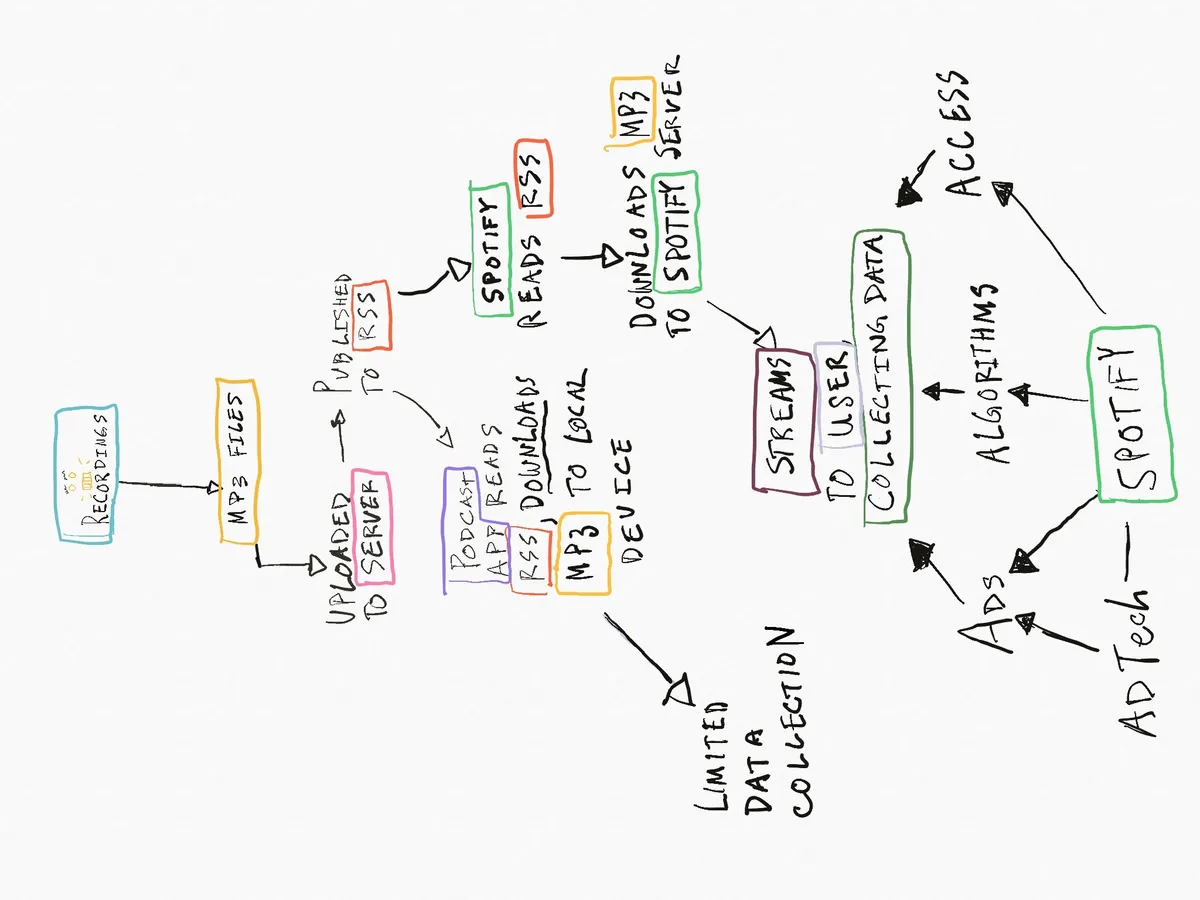 RECORDINGS
MP3 FILES
UPLOADED
TO SERVER
PUBLISHED
TO RSS
PODCAST
APP READS
RSS, DOWNLOADS
MP3 TO LOCAL
DEVICE
LIMITED
DATA
COLLECTION
SPOTIFY
READS RSS
DOWNLOADS MP3
TO SPOTIFY SERVER
STREAMS
TO USER,
COLLECTING DATA
ADS
ALGORITHMS
ACCESS
ADTech
SPOTIFY